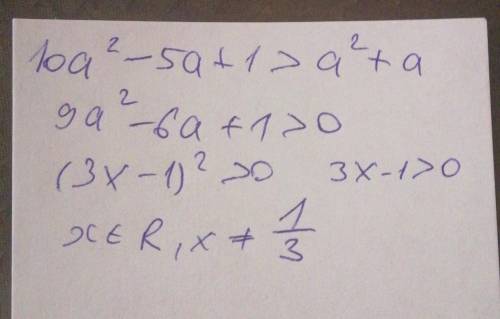 10a² - 5a + 1 > a² + a
9a² - 6a + 1 > 0
(3x - 1)² > 0 3x - 1 > 0
x ∈ R, x ≠ 1/3